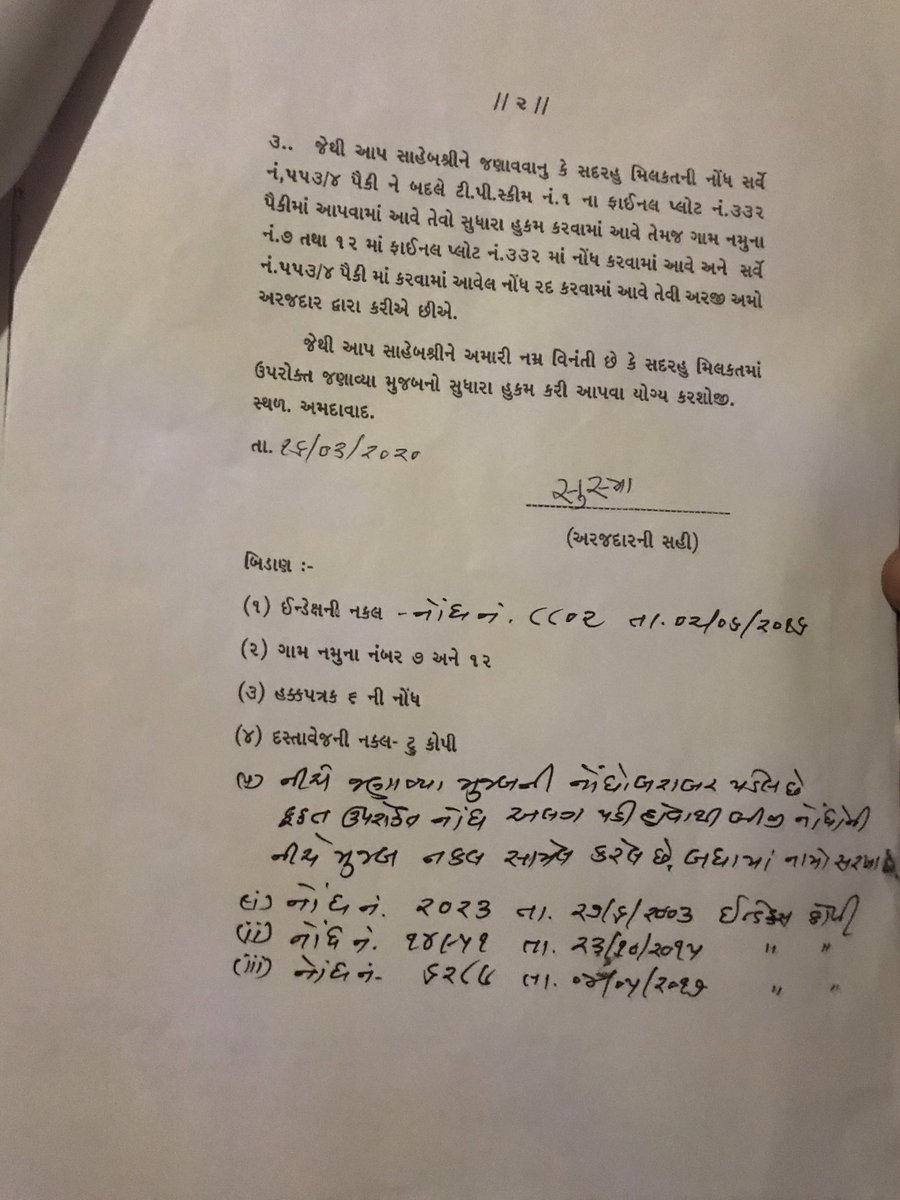 // ૨ //
૩.. જેથી આપ સાહેબશ્રીને જણાવવાનુ કે સદરહુ મિલકતની નોંધ સર્વે
નં,૫૫૩/૪ પૈકી ને બદલે ટી.પી.સ્કીમ નં.૧ ના ફાઈનલ પ્લોટ નં.૩૩૨
પૈકીમાં આપવામાં આવે તેવો સુધારા હુકમ કરવામાં આવે તેમજ ગામ નમુના
નં.૭ તથા ૧૨ માં ફાઈનલ પ્લોટ નં.૩૩૨ માં નોંધ કરવામાં આવે અને સર્વે
નં.૫૫૩/૪ પૈકી માં કરવામાં આવેલ નોંધ રદ કરવામાં આવે તેવી અરજી અમો
અરજદાર દ્વારા કરીએ છીએ.
જેથી આપ સાહેબશ્રીને અમારી નમ્ર વિનંતી છે કે સદરહુ મિલકતમાં
ઉપરોક્ત જણાવ્યા મુજબનો સુધારા હુકમ કરી આપવા યોગ્ય કરશોજી.
સ્થળ. અમદાવાદ.
તા. ૧૬/૦૩/૨૦૨૦
(અરજદારની સહી)
બિડાણ :-
(૧) ઈન્ડેક્ષની નકલ - નોંધ નં. ૮૮૦૨ તા. ૦૨/૦૬/૨૦૧૬
(૨) ગામ નમુના નંબર ૭ અને ૧૨
(૩) હક્કપત્રક ૬ ની નોંધ
(૪) દસ્તાવેજની નકલ- ટ્રુ કોપી
(૫) નીચે જણાવ્યા મુજબની નોંધો બરાબર પડેલ છે
ફકત ઉપરોક્ત નોંધ અલગ પડી હોવાથી બીજી નોંધોની
નીચે મુજબ નકલ સામેલ કરેલ છે, બધામાં નામો સરખા
(i) નોંધ નં. ૨૦૨૩ તા. ૨૭/૬/૨૦૦૩ ઈન્ડેક્સ કોપી
(ii) નોંધ નં. ૧૪૯૫૧ તા. ૨૩/૧૦/૨૦૧૫ " "
(iii) નોંધ નં- ૬૨૮૫ તા. ૦૪/૦૫/૨૦૧૭ " "